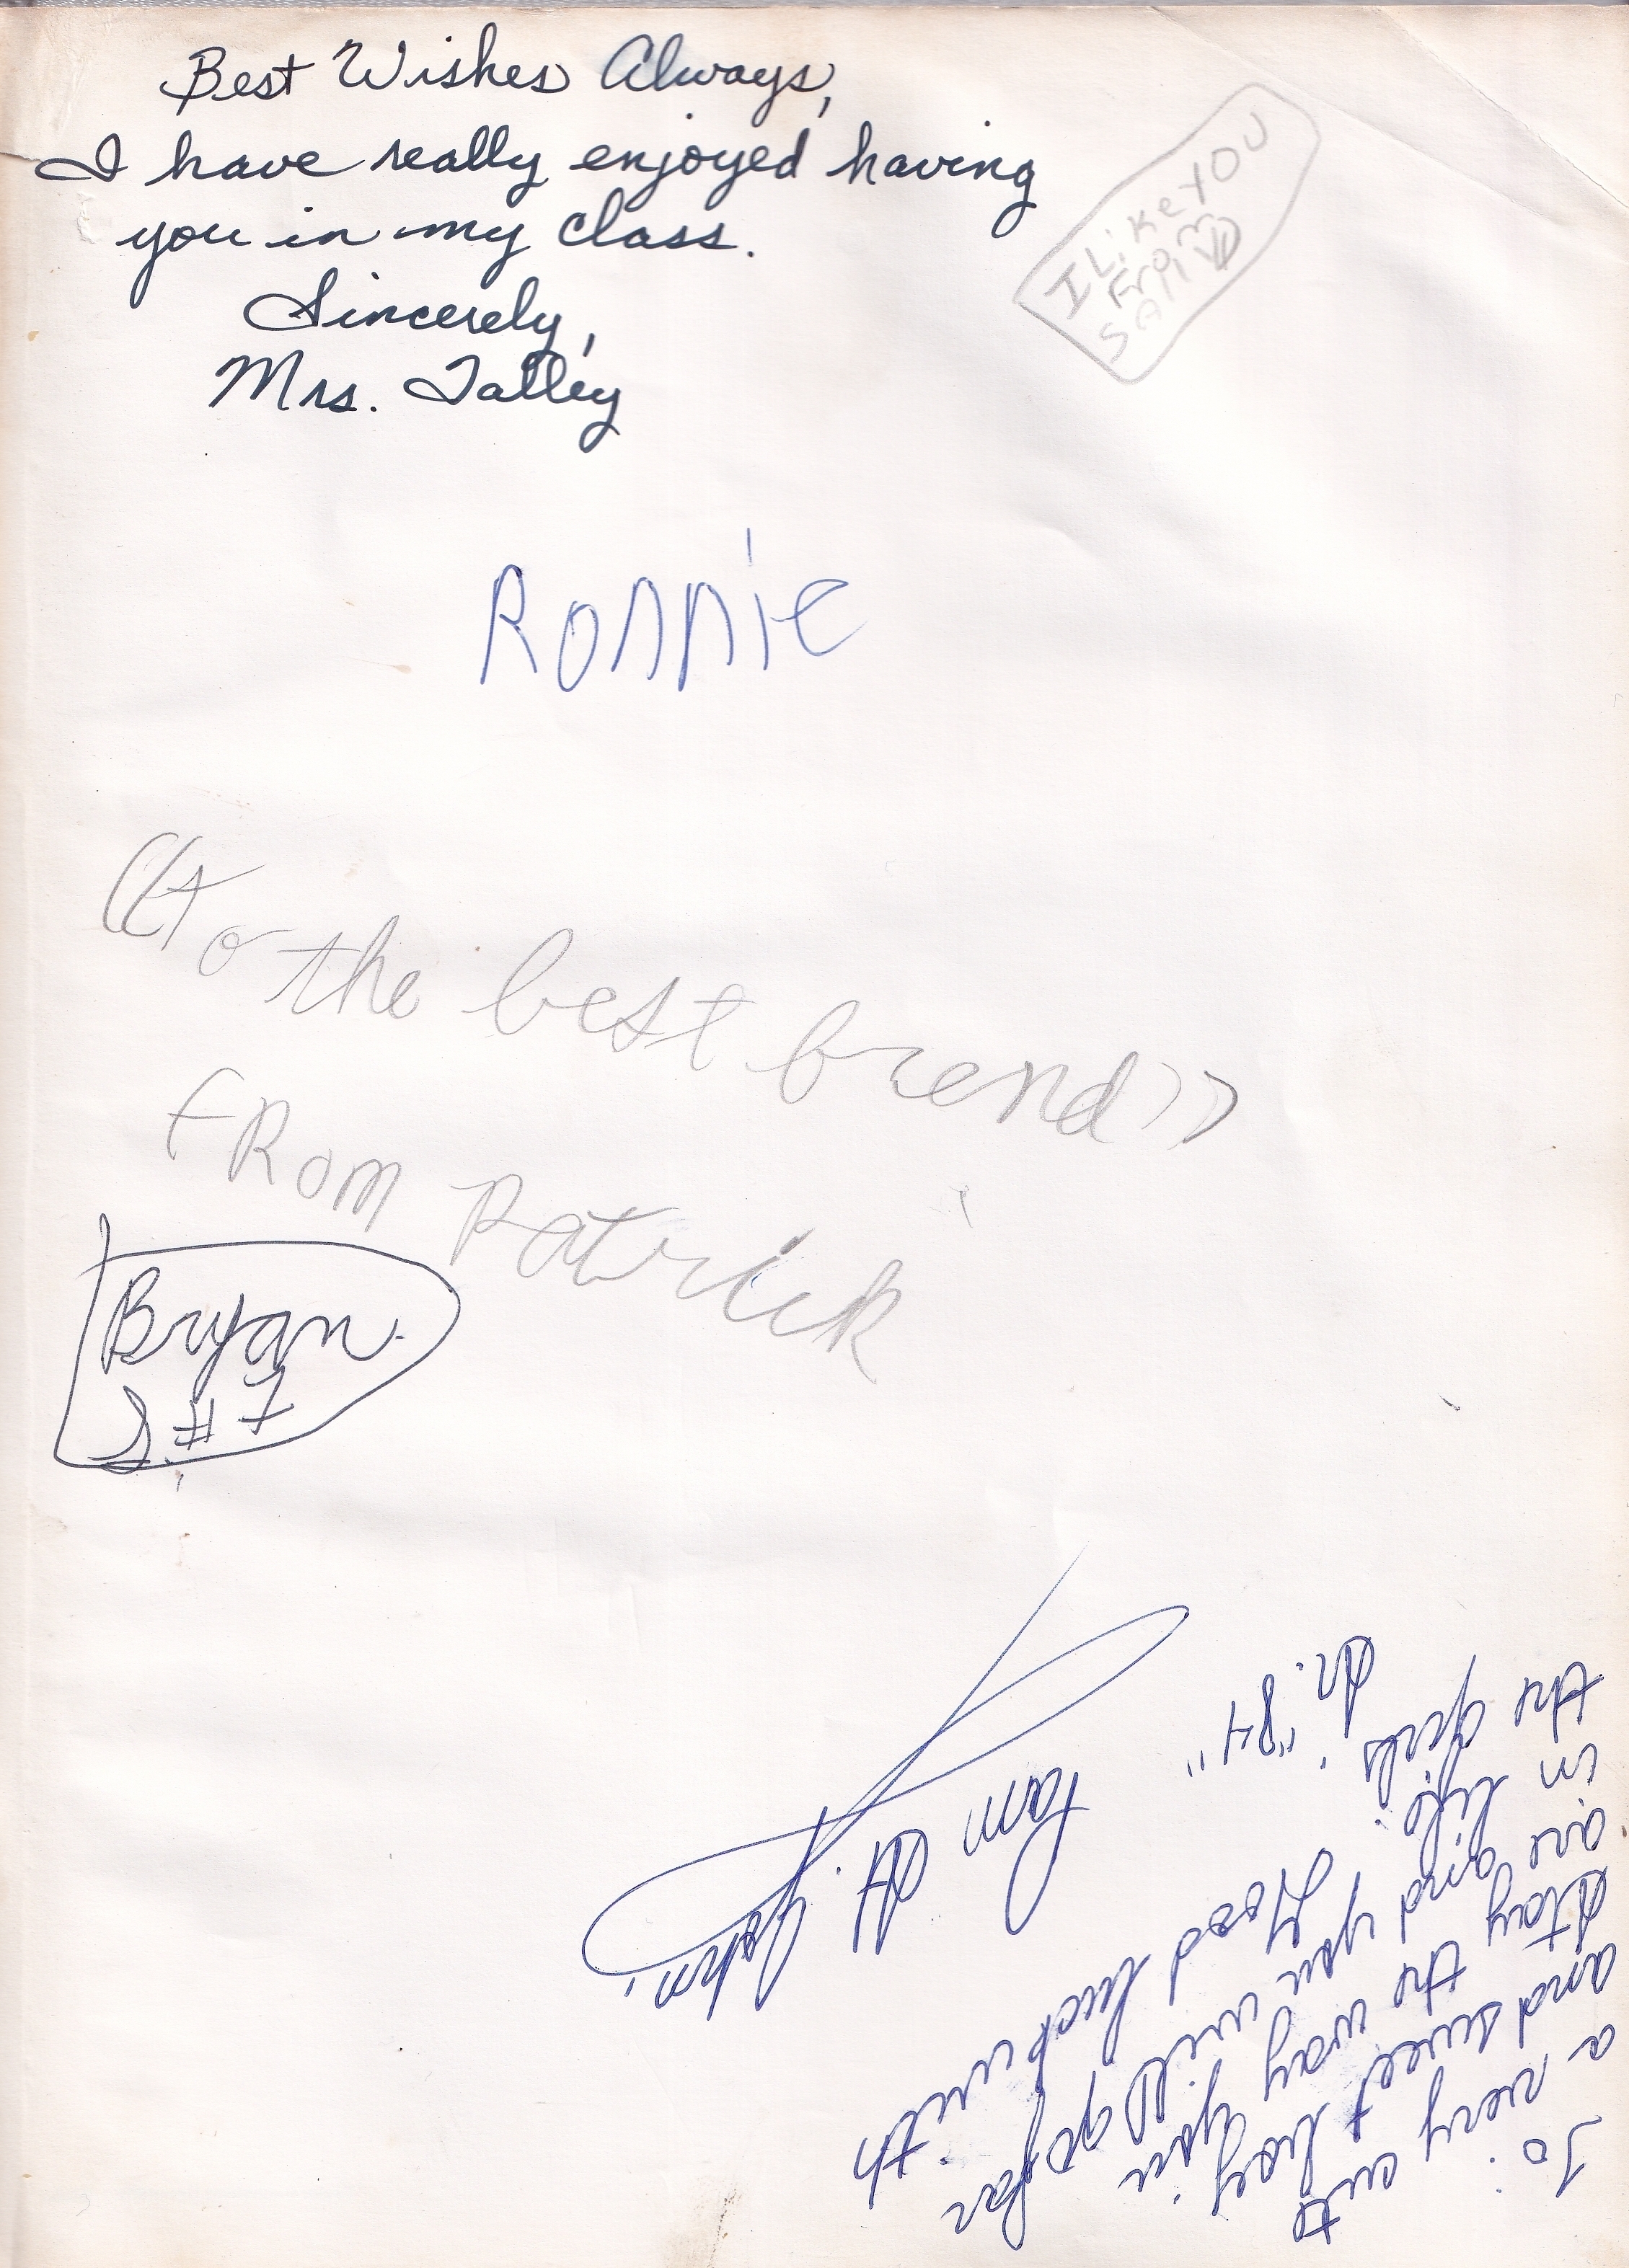 Best Wishes Always,
I have really enjoyed having
you in my class.
Sincerely,
Mrs. Talley
I Like YOU
From
SAM
Ronnie
"to the best briend"
FRom Patrick
Bryan.
S. #7
To
a very cute
and sweet boy
Stay the way you
are and you will go far
in life. Good luck with
the girls.
Jr. "84"
Pam H.